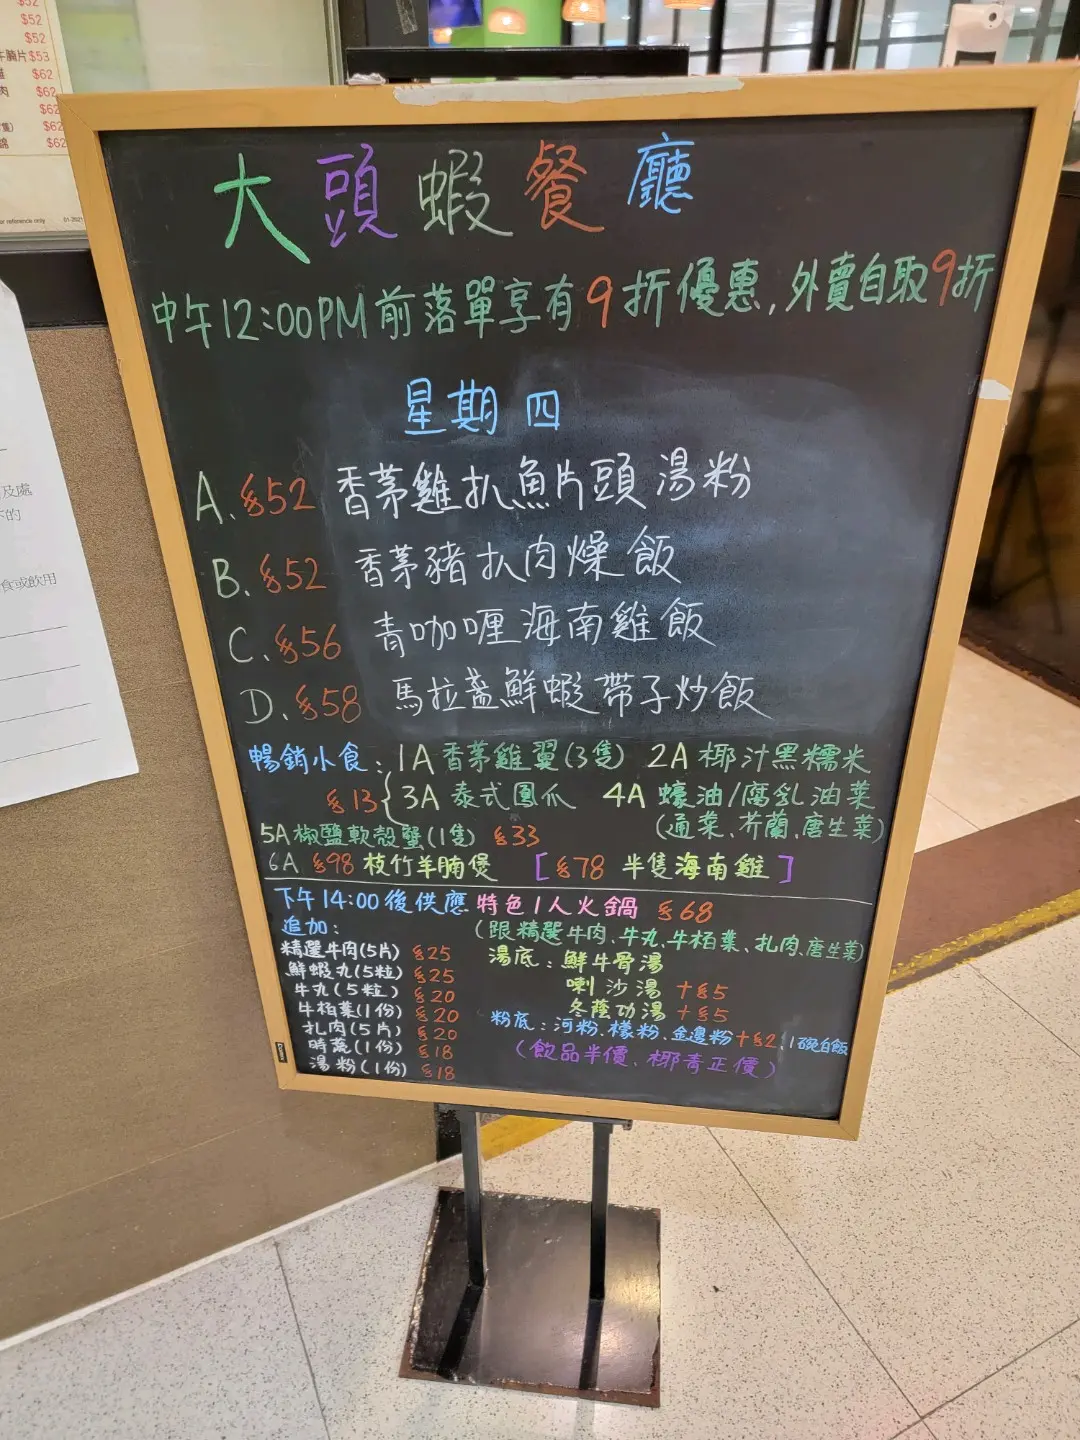 $52
$52
$52
牛腩片$53
$62
肉 $62
$62
$62
$62
r reference only
及處
不的
食或飲用
大頭蝦餐廳
中午12:00PM前落單享有9折優惠,外賣自取9折
星期四
A. $52 香茅雞扒魚片頭湯粉
B. $52 香茅豬扒肉燥飯
C. $56 青咖喱海南雞飯
D. $58 馬拉盞鮮蝦帶子炒飯
暢銷小食: 1A 香茅雞翼(3隻) 2A 椰汁黑糯米
$13 { 3A 泰式鳳爪 4A 蠔油/腐乳油菜
(通菜、芥蘭、唐生菜)
5A 椒鹽軟殼蟹(1隻) $33
6A $98 枝竹羊腩煲 [$78 半隻海南雞]
下午14:00後供應 特色1人火鍋 $68
追加:
(跟精選牛肉、牛丸、牛栢葉、扎肉、唐生菜)
精選牛肉(5片) $25
鮮蝦丸(5粒) $25
牛丸(5粒) $20
牛栢葉(1份) $20
扎肉(5片) $20
時蔬(1份) $18
湯粉(1份) $18
湯底:鮮牛骨湯
喇沙湯 +$5
冬蔭功湯 +$5
粉底:河粉、檬粉、金邊粉+$2,1碗白飯
(飲品半價、椰青正價)